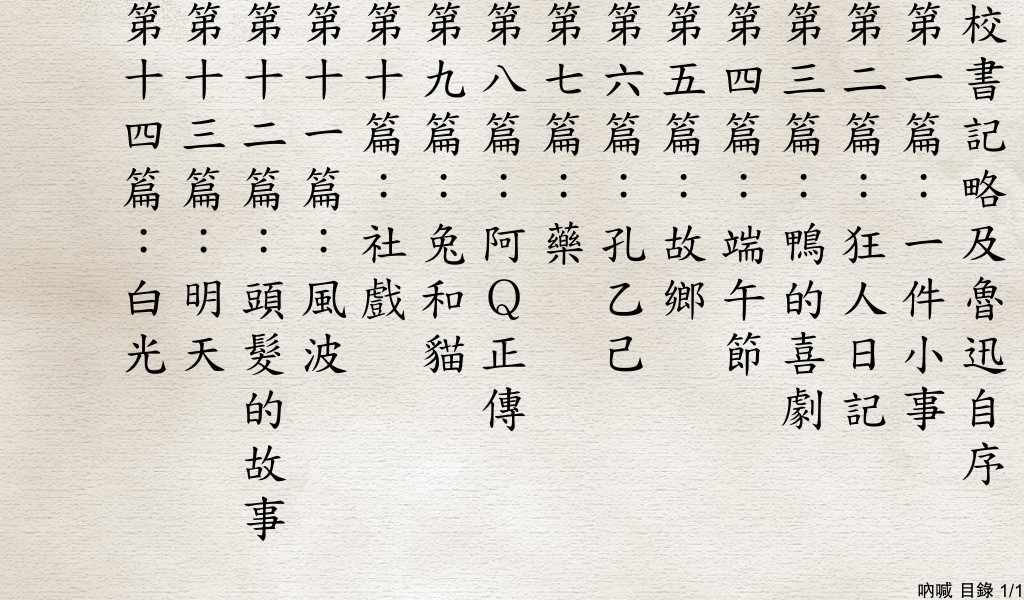 校書記略及魯迅自序
第一篇：一件小事
第二篇：狂人日記
第三篇：鴨的喜劇
第四篇：端午節
第五篇：故鄉
第六篇：孔乙己
第七篇：藥
第八篇：阿Q正傳
第九篇：兔和貓
第十篇：社戲
第十一篇：風波
第十二篇：頭髮的故事
第十三篇：明天
第十四篇：白光
吶喊 目錄 1/1